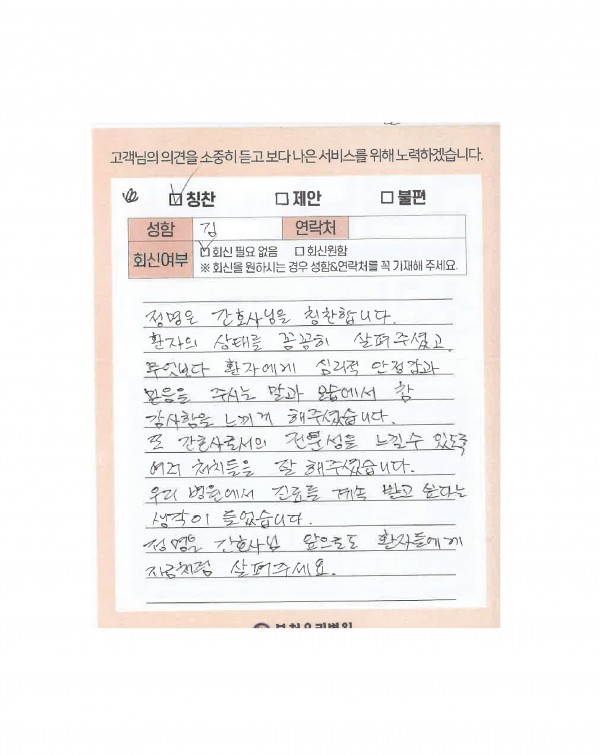 고객님의 의견을 소중히 듣고 보다 나은 서비스를 위해 노력하겠습니다.
칭찬 제안 불편
성함 김 연락처
회신여부 회신 필요 없음 회신원함
※ 회신을 원하시는 경우 성함&연락처를 꼭 기재해 주세요.
정명은 간호사님을 칭찬합니다.
환자의 상태를 꼼꼼히 살펴주셨고,
무엇보다 환자에게 심리적 안정감과
믿음을 주시는 말과 모습에서 참
감사함을 느끼게 해주셨습니다.
또 간호사로서의 전문성을 느낄 수 있도록
여러 처치들을 잘 해주셨습니다.
우리 병원에서 진료를 계속 받고 싶다는
생각이 들었습니다.
정명은 간호사님 앞으로도 환자들에게
지금처럼 살펴주세요.